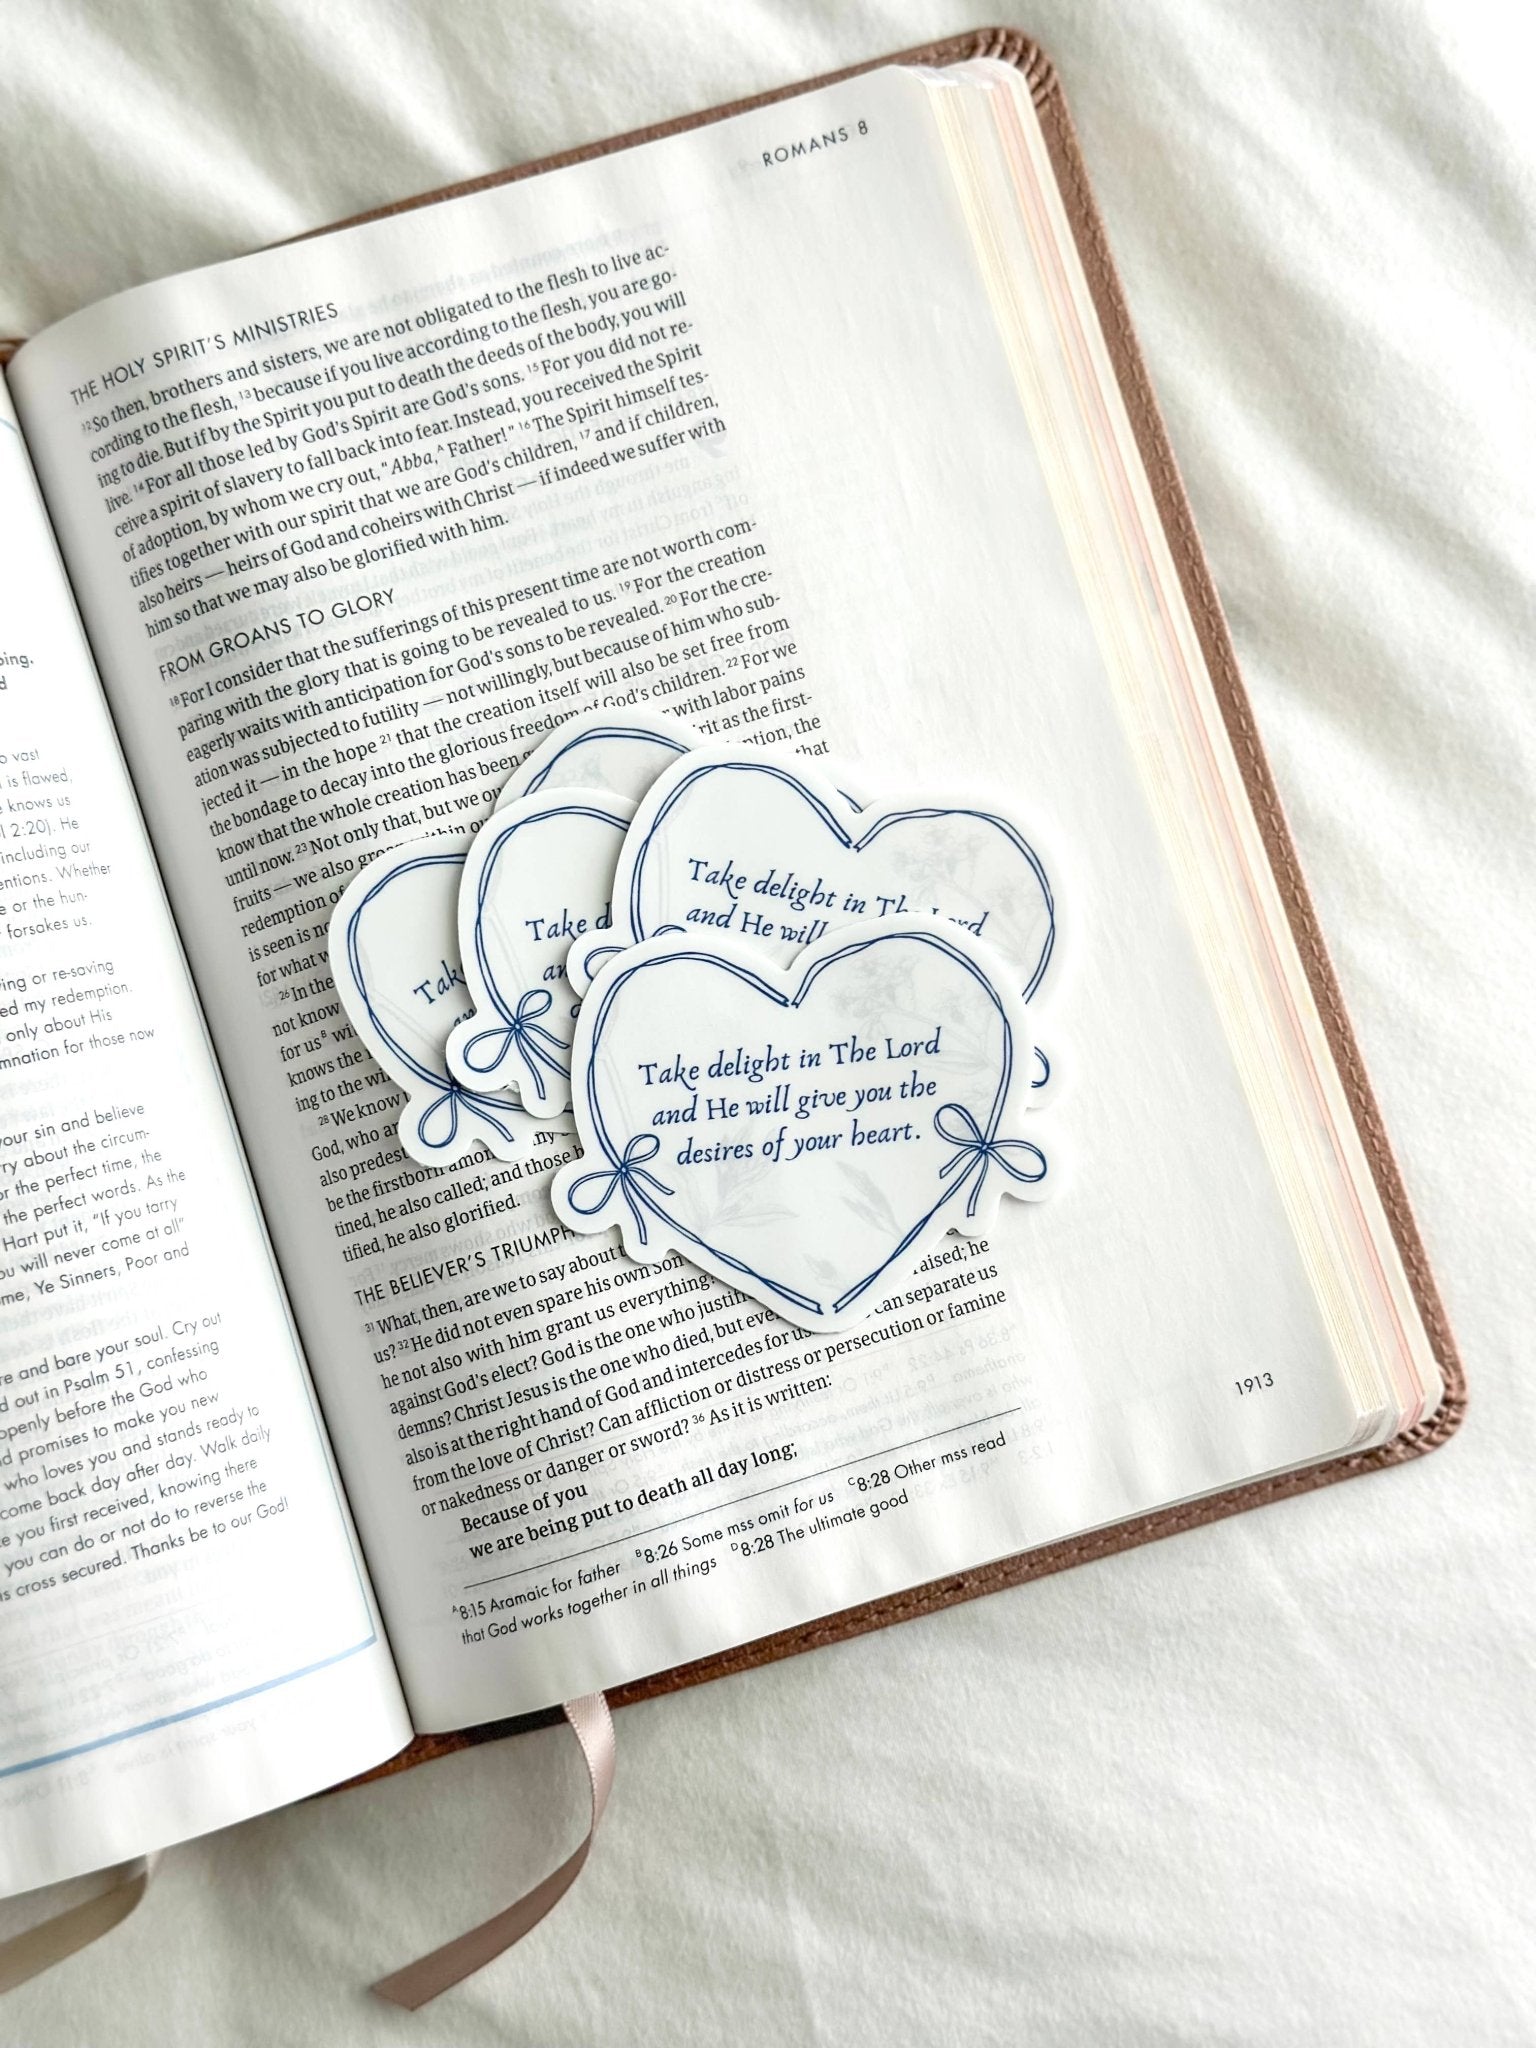 ping.
d
o vast
l is flawed,
e knows us
l 2:20). He
including our
entions. Whether
e or the hun-
forsakes us.
ving or re-saving
ed my redemption.
only about His
mnation for those now
your sin and believe
ry about the circum-
or the perfect time, the
the perfect words. As the
Hart put it, “If you tarry
ou will never come at all”
ome, Ye Sinners, Poor and
re and bare your soul. Cry out
d out in Psalm 51, confessing
openly before the God who
d promises to make you new
who loves you and stands ready to
come back day after day. Walk daily
e you first received, knowing there
you can do or not do to reverse the
is cross secured. Thanks be to our God!
ROMANS 8
THE HOLY SPIRIT’S MINISTRIES
12 So then, brothers and sisters, we are not obligated to the flesh to live ac-
cording to the flesh, 13 because if you live according to the flesh, you are go-
ing to die. But if by the Spirit you put to death the deeds of the body, you will
live. 14 For all those led by God's Spirit are God's sons. 15 For you did not re-
ceive a spirit of slavery to fall back into fear. Instead, you received the Spirit
of adoption, by whom we cry out, "Abba,A Father!" 16 The Spirit himself tes-
tifies together with our spirit that we are God's children, 17 and if children,
also heirs — heirs of God and coheirs with Christ — if indeed we suffer with
him so that we may also be glorified with him.
FROM GROANS TO GLORY
18 For I consider that the sufferings of this present time are not worth com-
paring with the glory that is going to be revealed to us. 19 For the creation
eagerly waits with anticipation for God's sons to be revealed. 20 For the cre-
ation was subjected to futility — not willingly, but because of him who sub-
jected it — in the hope 21 that the creation itself will also be set free from
the bondage to decay into the glorious freedom of God's children. 22 For we
know that the whole creation has been g with labor pains
until now. 23 Not only that, but we ou rit as the first-
fruits — we also groan within ou ption, the
redemption of that
is seen is no
for what w
26 In the
not know
for usB wi
knows the
ing to the wi
28 We know
God, who ar
also predest
be the firstborn among
tined, he also called; and those h
tified, he also glorified.
THE BELIEVER’S TRIUMPH
31 What, then, are we to say about
us? 32 He did not even spare his own Son
he not also with him grant us everything?
against God's elect? God is the one who justifi raised; he
demns? Christ Jesus is the one who died, but eve can separate us
also is at the right hand of God and intercedes for us
from the love of Christ? Can affliction or distress or persecution or famine
or nakedness or danger or sword? 36 As it is written:
Because of you
we are being put to death all day long;
A 8:15 Aramaic for father B 8:26 Some mss omit for us C 8:28 Other mss read
that God works together in all things D 8:28 The ultimate good
1913
Take delight in The Lord
and He will
Take d
an
Take
an
Take delight in The Lord
and He will give you the
desires of your heart.